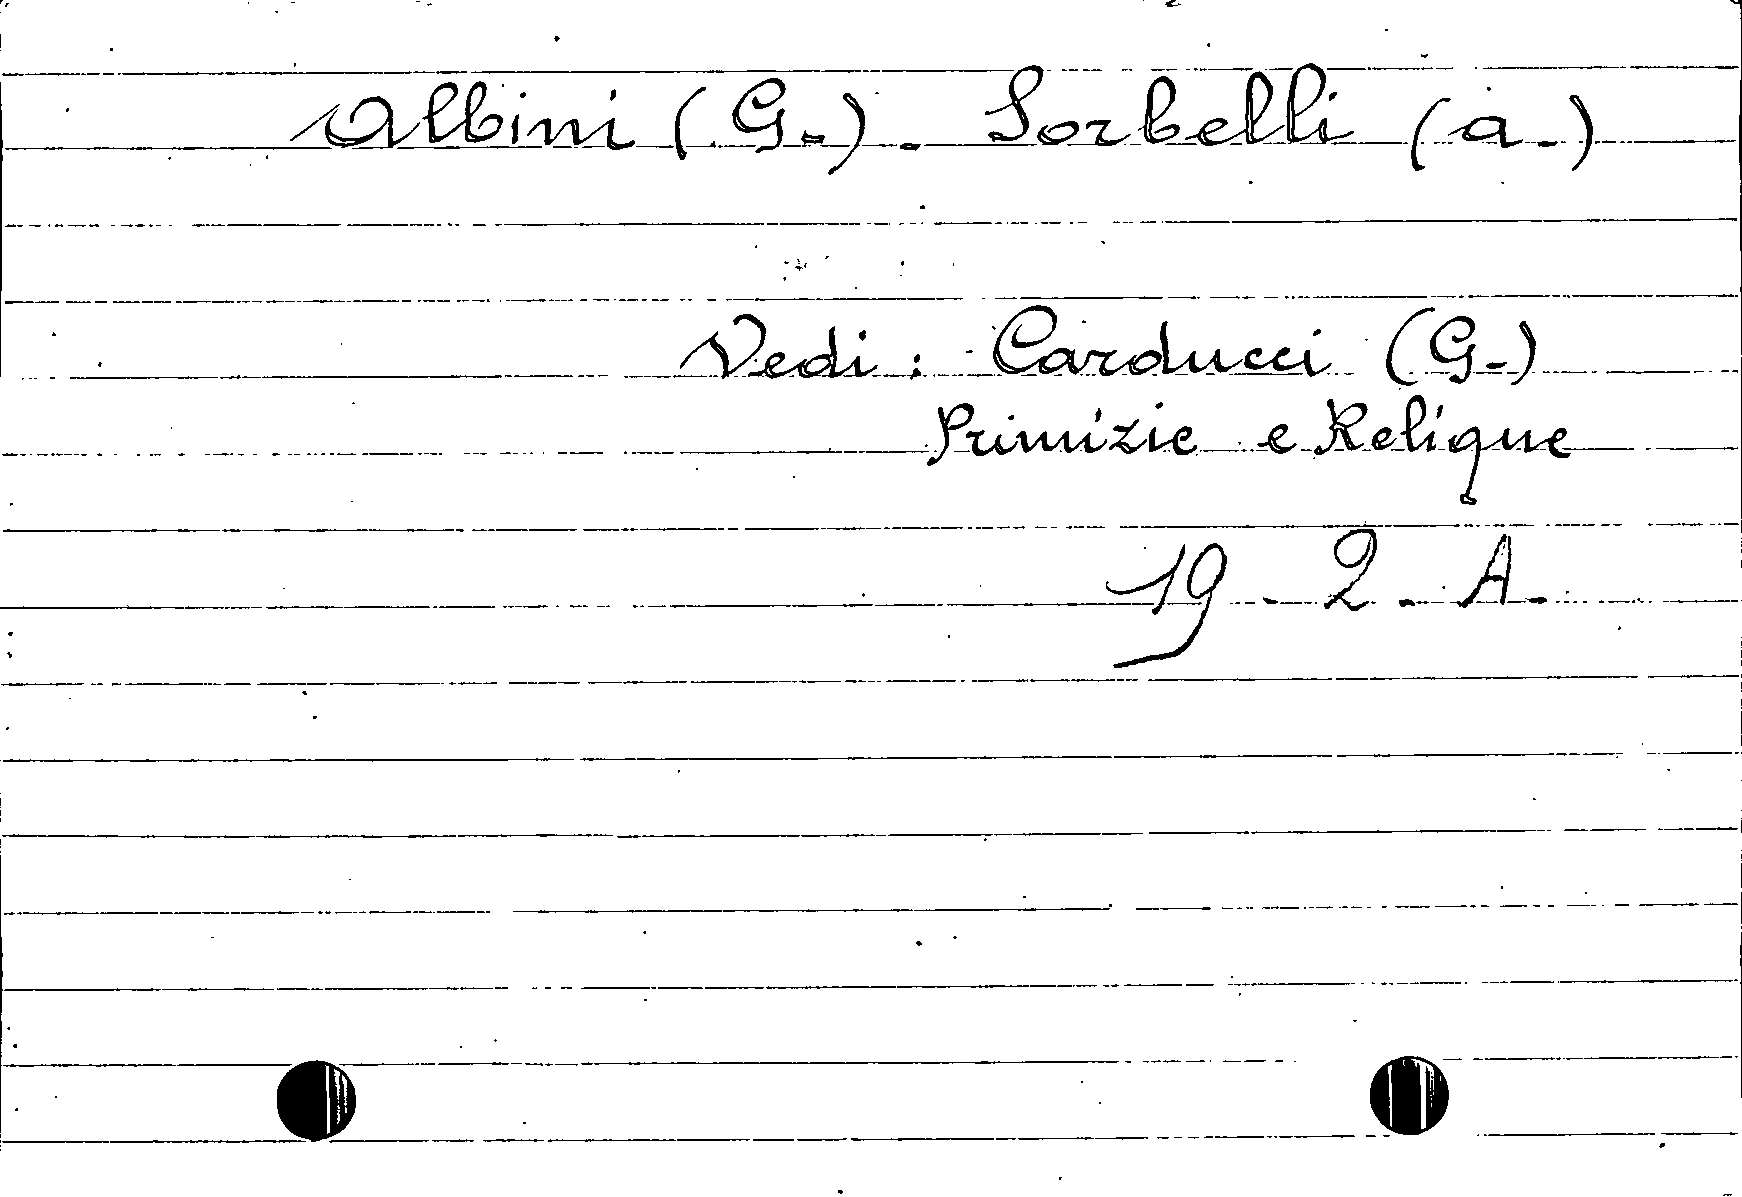 Albini (G.). Sorbelli (A.)
Vedi: Carducci (G.)
Primizie e Relique
19 - 2 - A.